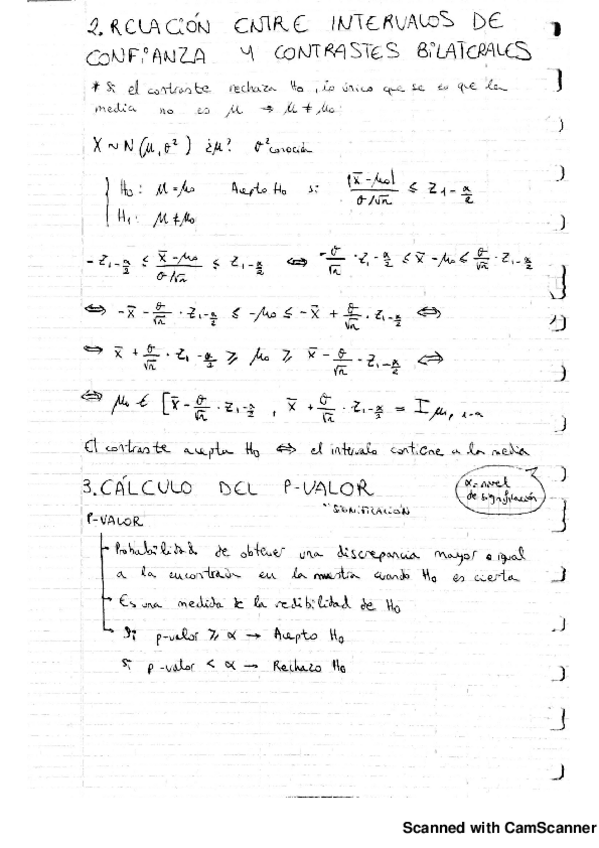 2. RELACIÓN ENTRE INTERVALOS DE
CONFIANZA Y CONTRASTES BILATERALES
* Si el contraste rechaza H₀, lo único que se es que la
media no es μ → μ ≠ μ₀
X ~ N(μ, σ²) ¿μ? σ² conocida
H₀: μ = μ₀ Acepto H₀ si |x̄ - μ₀| / σ/√n ≤ Z₁₋α/2
H₁: μ ≠ μ₀
- Z₁₋α/2 ≤ x̄ - μ₀ / σ/√n ≤ Z₁₋α/2 ⇔ -σ/√n · Z₁₋α/2 ≤ x̄ - μ₀ ≤ σ/√n · Z₁₋α/2
⇔ -x̄ - σ/√n · Z₁₋α/2 ≤ -μ₀ ≤ -x̄ + σ/√n · Z₁₋α/2 ⇔
⇔ x̄ + σ/√n · Z₁₋α/2 ≥ μ₀ ≥ x̄ - σ/√n · Z₁₋α/2 ⇔
⇔ μ₀ ∈ [x̄ - σ/√n · Z₁₋α/2 , x̄ + σ/√n · Z₁₋α/2 = I μ, 1-α
El contraste acepta H₀ ⇔ el intervalo contiene a la media
3. CÁLCULO DEL P-VALOR
α = nivel
de significación
"SIGNIFICACIÓN
P-VALOR
Probabilidad de obtener una discrepancia mayor o igual
a la encontrada en la muestra cuando H₀ es cierta
Es una medida de la credibilidad de H₀
Si p-valor ≥ α → Acepto H₀
Si p-valor < α → Rechazo H₀
Scanned with CamScanner